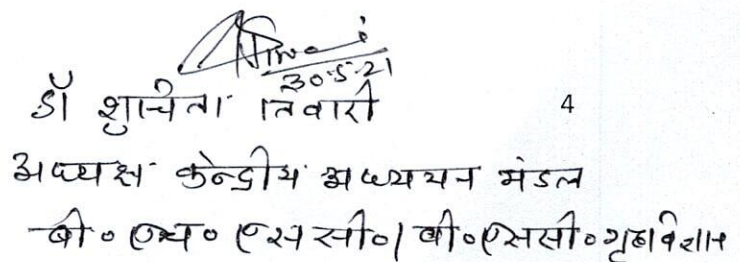 30.5.21
डॉ शुचिता तिवारी
4
अध्यक्ष केन्द्रीय अध्ययन मंडल
बी० एच० एस सी० / बी० एससी० गृहविज्ञान